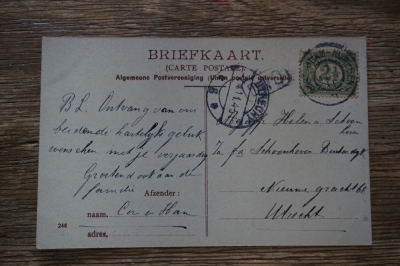 BRIEFKAART.
(CARTE POSTALE)
Algemeene Postvereeniging (Union postale universelle).
B.L. Ontvang van ons
beidende hartelijke geluk
wenschen met je verjaardag
Groetend ook aan de
familie
Afzender:
naam. Cor en Han
adres.
246
Helena Schoon
p/a fa Schoonhoven
Nieuwe gracht
Utrecht
UTRECHT
2½